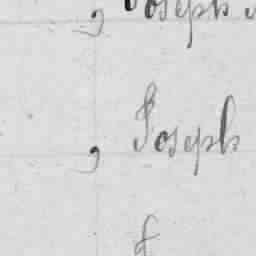 , Joseph
, Joseph